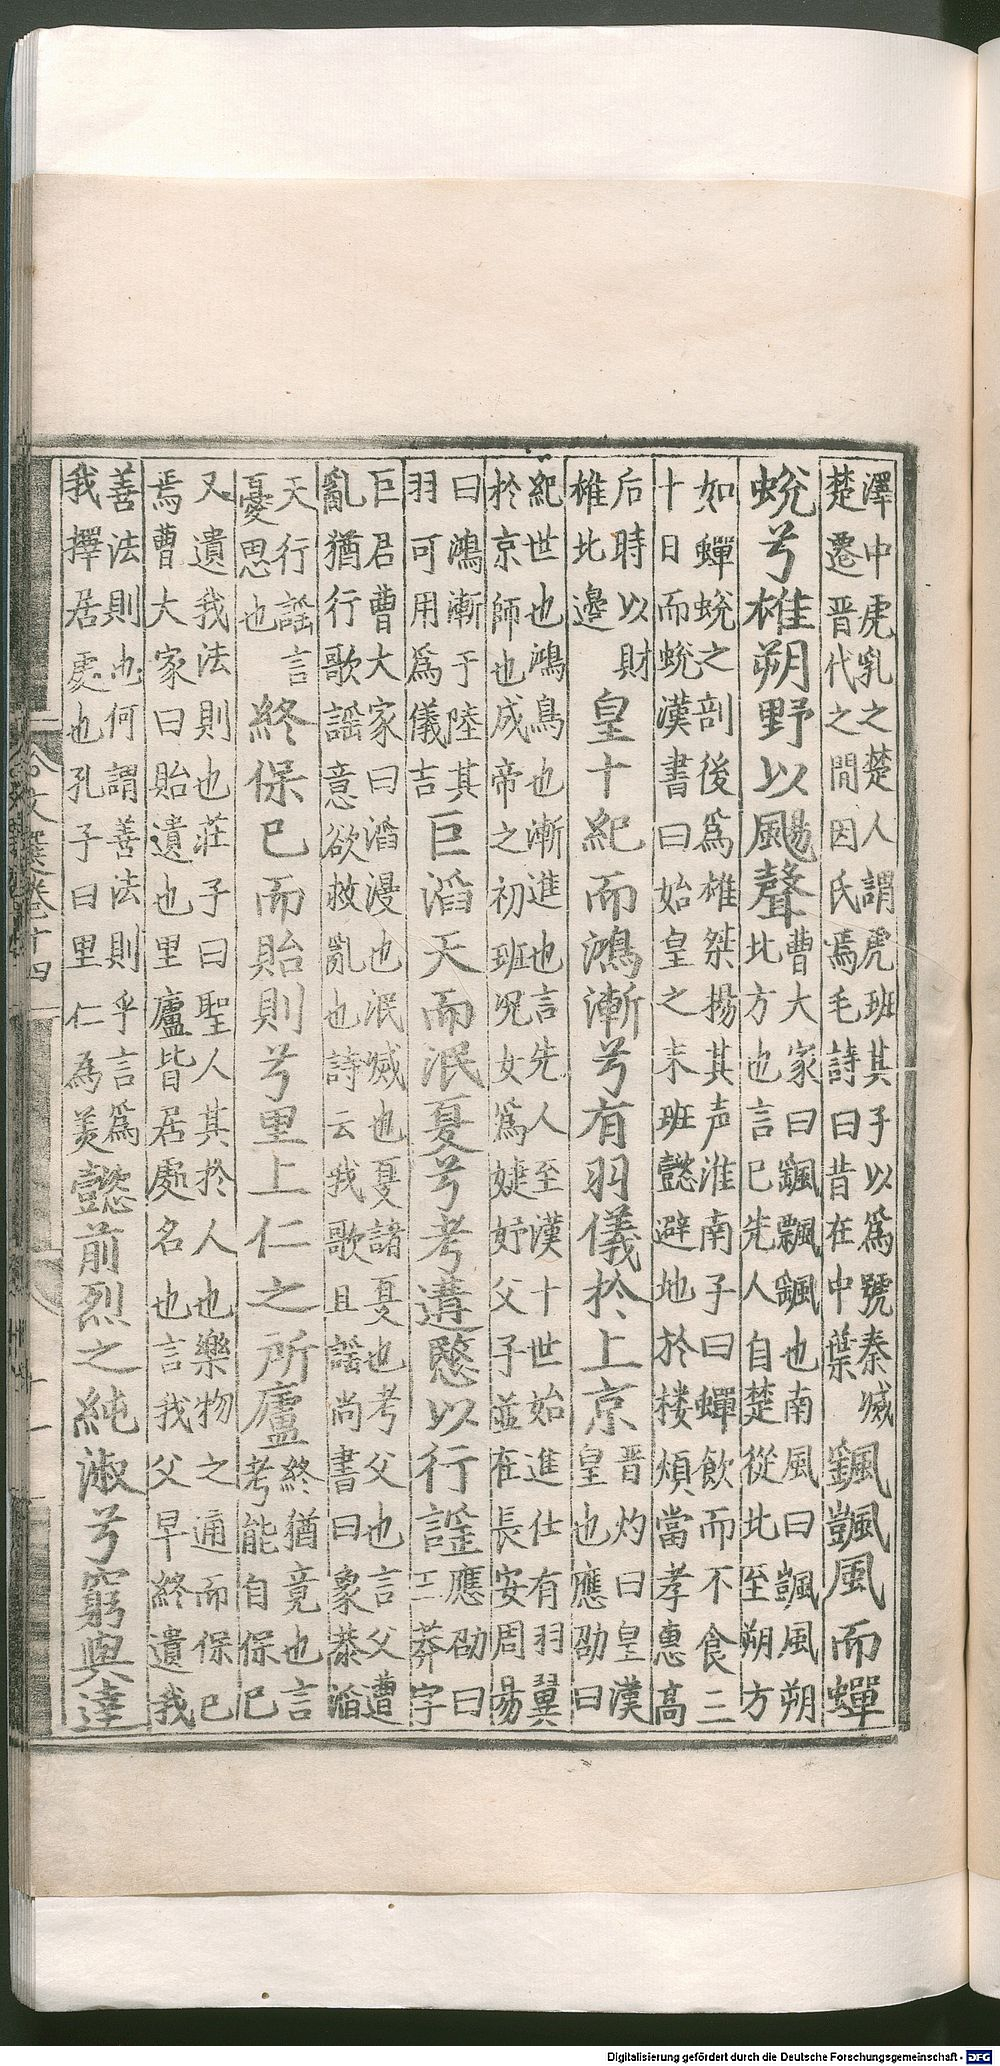 澤中虎乳之楚人謂虎班其子以爲號秦滅
楚遷晋代之間因氏焉毛詩曰昔在中葉
飖颽風而蟬
蛻兮雄朔野以颺聲
曹大家曰飖飄飖也南風曰颽風朔
北方也言已先人自楚從北至朔方
如蟬蛻之剖後爲雄桀揚其声淮南子曰蟬飲而不食三
十日而蛻漢書曰始皇之末班懿避地於樓煩當孝惠高
后時以財
雄北邊
皇十紀而鴻漸兮有羽儀於上京
晋灼曰皇漢
皇也應劭曰
紀世也鴻鳥也漸進也言先人至漢十世始進仕有羽翼
於京師也成帝之初班况女爲婕妤父子並在長安周易
曰鴻漸于陸其
羽可用爲儀吉
巨滔天而泯夏兮考遘愍以行謡
應劭曰
王莽字
巨君曹大家曰滔漫也泯滅也夏諸夏也考父也言父遭
亂猶行歌謡意欲救亂也詩云我歌且謡尚書曰象恭滔
天行謡言
憂思也
終保已而貽則兮里上仁之所廬
終猶竟也言
考能自保已
又遺我法則也莊子曰聖人其於人也樂物之通而保已
焉曹大家曰貽遺也里廬皆居處名也言我父早終遺我
善法則也何謂善法則乎言爲
我擇居處也孔子曰里仁為美
懿前烈之純淑兮窮與達
文選卷十四
Digitalisierung gefördert durch die Deutsche Forschungsgemeinschaft - DFG